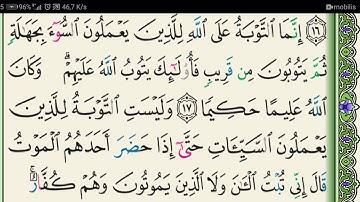 5 96% 46,7 K/s mobilis
١٦ إِنَّمَا ٱلتَّوْبَةُ عَلَى ٱللَّهِ لِلَّذِينَ يَعْمَلُونَ ٱلسُّوٓءَ بِجَهَٰلَةٍ
ثُمَّ يَتُوبُونَ مِن قَرِيبٍ فَأُو۟لَٰٓئِكَ يَتُوبُ ٱللَّهُ عَلَيْهِمْ ۗ وَكَانَ
ٱللَّهُ عَلِيمًا حَكِيمًا ١٧ وَلَيْسَتِ ٱلتَّوْبَةُ لِلَّذِينَ
يَعْمَلُونَ ٱلسَّيِّـَٔاتِ حَتَّىٰٓ إِذَا حَضَرَ أَحَدَهُمُ ٱلْمَوْتُ
قَالَ إِنِّى تُبْتُ ٱلْـَٰٔنَ وَلَا ٱلَّذِينَ يَمُوتُونَ وَهُمْ كُفَّارٌ ۚ